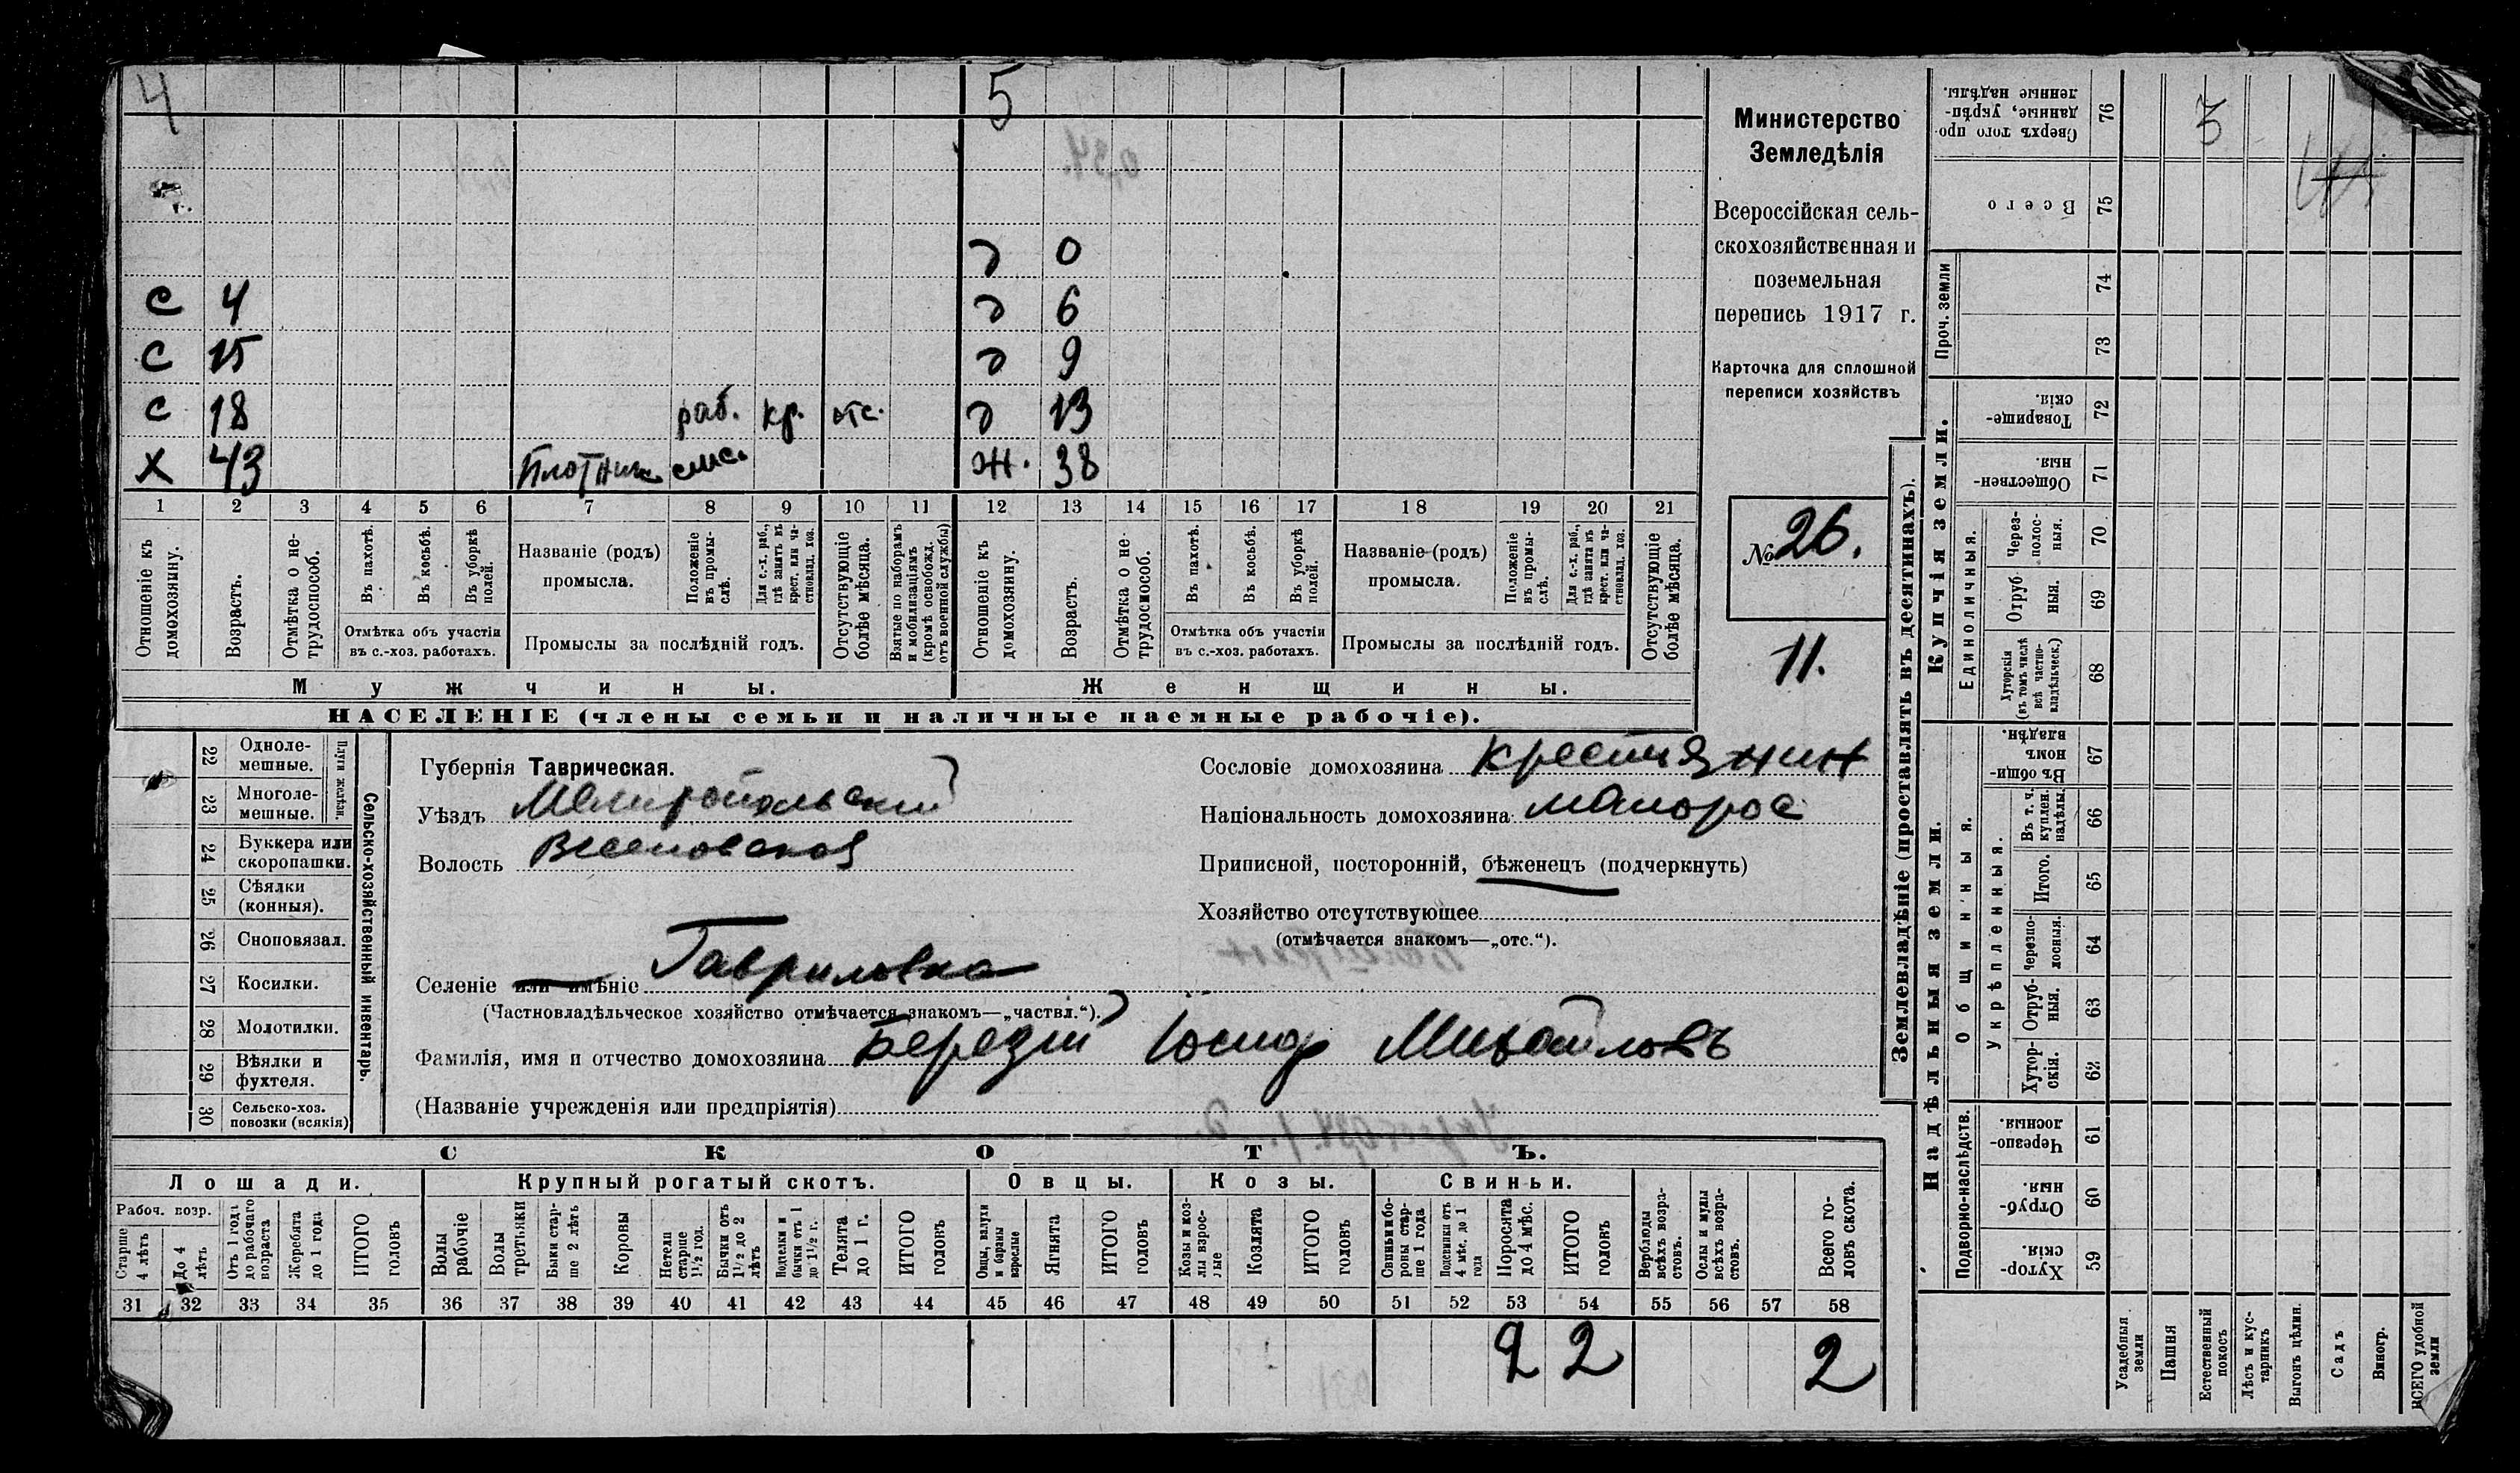 4 5
0,34.
д 0
с 4 д 6
с 15 д 9
с 18 раб. кр. отс. д 13
х 43 Плотник ж. 38
1 2 3 4 5 6 7 8 9 10 11 12 13 14 15 16 17 18 19 20 21
Отношеніе къ домохозяину.
Возрастъ.
Отмѣтка о не-трудоспособ.
Въ пахотѣ.
Въ косьбѣ.
Въ уборкѣ полей.
Отмѣтка объ участіи
въ с.-хоз. работахъ.
Названіе (родъ)
промысла.
Положеніе въ промы-слѣ.
Для с.-х. раб., гдѣ занятъ въ крест. или ча-стновлад. хоз.
Промыслы за послѣдній годъ.
Отсутствующіе болѣе мѣсяца.
Взятые по наборамъ и мобилизаціямъ (кромѣ освобожд. отъ военной службы)
Отношеніе къ домохозяину.
Возрастъ.
Отмѣтка о не-трудоспособ.
Въ пахотѣ.
Въ косьбѣ.
Въ уборкѣ полей.
Отмѣтка объ участіи
въ с.-хоз. работахъ.
Названіе (родъ)
промысла.
Положеніе въ промы-слѣ.
Для с.-х. раб., гдѣ занята въ крест. или ча-стновлад. хоз.
Промыслы за послѣдній годъ.
Отсутствующіе болѣе мѣсяца.
Мужчины. Женщины.
НАСЕЛЕНІЕ (члены семьи и наличные наемные рабочіе).
Министерство
Земледѣлія
Всероссійская сель-
скохозяйственная и
поземельная
перепись 1917 г.
Карточка для сплошной
переписи хозяйствъ
№ 26.
11.
22 Одноле-мешные.
23 Многоле-мешные.
Плуги желѣзн.
24 Буккера или скоропашки.
25 Сѣялки (конныя).
26 Сноповязал.
27 Косилки.
28 Молотилки.
29 Вѣялки и фухтеля.
30 Сельско-хоз. повозки (всякія)
Сельско-хозяйственный инвентарь.
Губернія Таврическая.
Уѣздъ Мелитопольскій
Волость Веселовская
Сословіе домохозяина крестьянин
Національность домохозяина малорос
Приписной, посторонній, бѣженецъ (подчеркнуть)
Хозяйство отсутствующее
(отмѣчается знакомъ—„отс.“).
Селеніе или имѣніе Гавриловка
(Частновладѣльческое хозяйство отмѣчается знакомъ—„частвл.“).
Фамилія, имя и отчество домохозяина Берездій Іосиф Михайловъ
(Названіе учрежденія или предпріятія)
СКОТЪ.
Лошади. Крупный рогатый скотъ. Овцы. Козы. Свиньи.
Рабоч. возр.
Старше 4 лѣтъ
До 4 лѣтъ
Отъ 1 года до рабочаго возраста
Жеребята до 1 года
ИТОГО головъ
Волы рабочіе
Волы третьяки
Быки стар-ше 2 лѣтъ
Коровы
Нетели старше 1½ год.
Бычки отъ 1½ до 2 лѣтъ
Подтелки и бычки отъ 1 до 1½ г.
Телята до 1 г.
ИТОГО головъ
Овцы, валухи и бараны взрослые
Ягнята
ИТОГО головъ
Козы и коз-лы взрос-лые
Козлята
ИТОГО головъ
Свиньи и бо-ровы стар-ше 1 года
Подсвинки отъ 4 мѣс. до 1 года
Поросята до 4 мѣс.
ИТОГО головъ
Верблюды всѣхъ возра-стовъ.
Ослы и мулы всѣхъ возра-стовъ.
Всего го-ловъ скота.
31 32 33 34 35 36 37 38 39 40 41 42 43 44 45 46 47 48 49 50 51 52 53 54 55 56 57 58
2 2 2
Землевладѣніе (проставлять въ десятинахъ).
Купчія земли.
Надѣльныя земли.
Сверхъ того про-данные, укрѣп-ленные надѣлы. 76
3
Всего 75
Проч. земли 74
73
Товарище-скія. 72
Обществен-ныя. 71
Единоличныя.
Через-полос-ныя. 70
Отруб-ныя. 69
Хуторскія (въ томъ числѣ всѣ частно-владѣльческ.) 68
Въ общин-номъ владѣн. 67
Общинныя.
Укрѣпленныя.
Въ т. ч. куплен. надѣлы. 66
Итого. 65
Черезпо-лосныя. 64
Отруб-ныя. 63
Хутор-скія. 62
Подворно-наслѣдств.
Черезпо-лосныя. 61
Отруб-ныя. 60
Хутор-скія. 59
Усадебныя земли
Пашня
Естественный покосъ
Лѣсъ и кус-тарникъ
Выгонъ цѣлин.
Садъ
Виногр.
ВСЕГО удобной земли